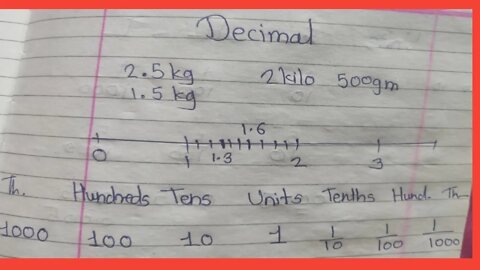 Decimal
2.5kg 2kilo 500gm
1.5kg
1.6
0 1 1.3 2 3
Th. Hundreds Tens Units Tenths Hund. Th
1000 100 10 1 1/10 1/100 1/1000